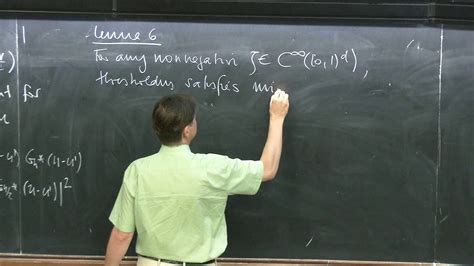 Lemma 6
For any nonnegative ζ ∈ C^∞([0,1)^d),
thresholding satisfies mi
nt for
- u') G_h * (u - u')
* (u - u')|²